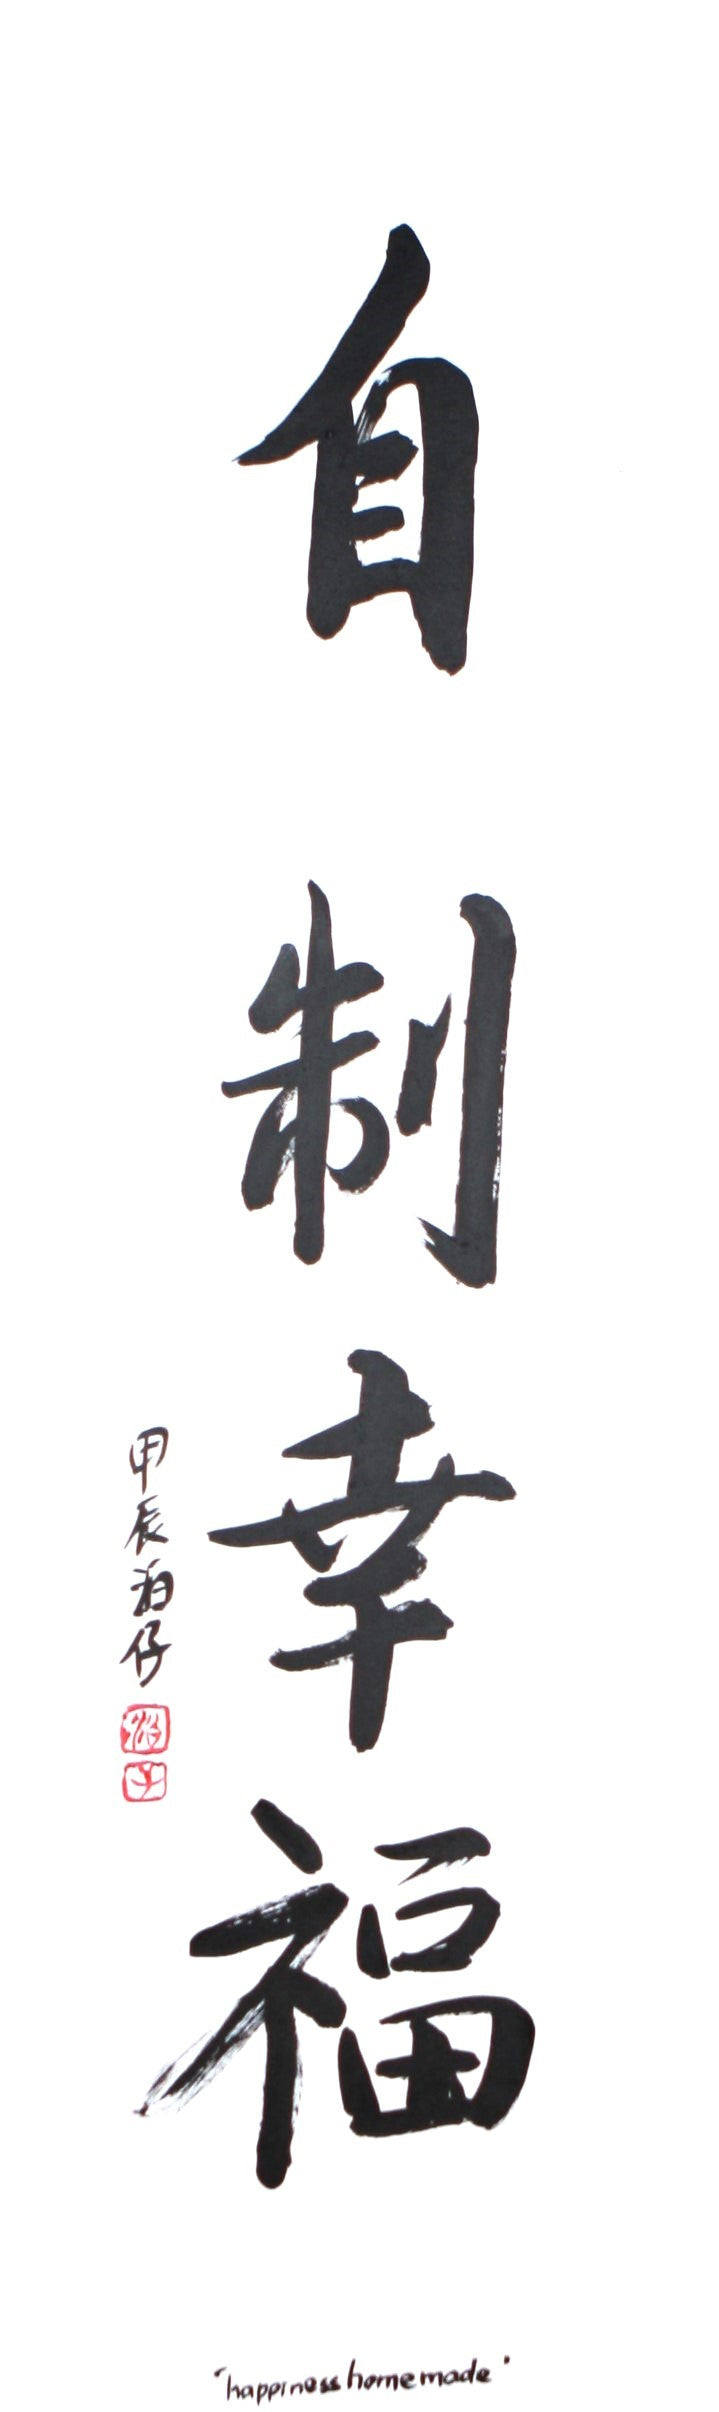 自制幸福
甲辰泊仔
"happiness homemade"